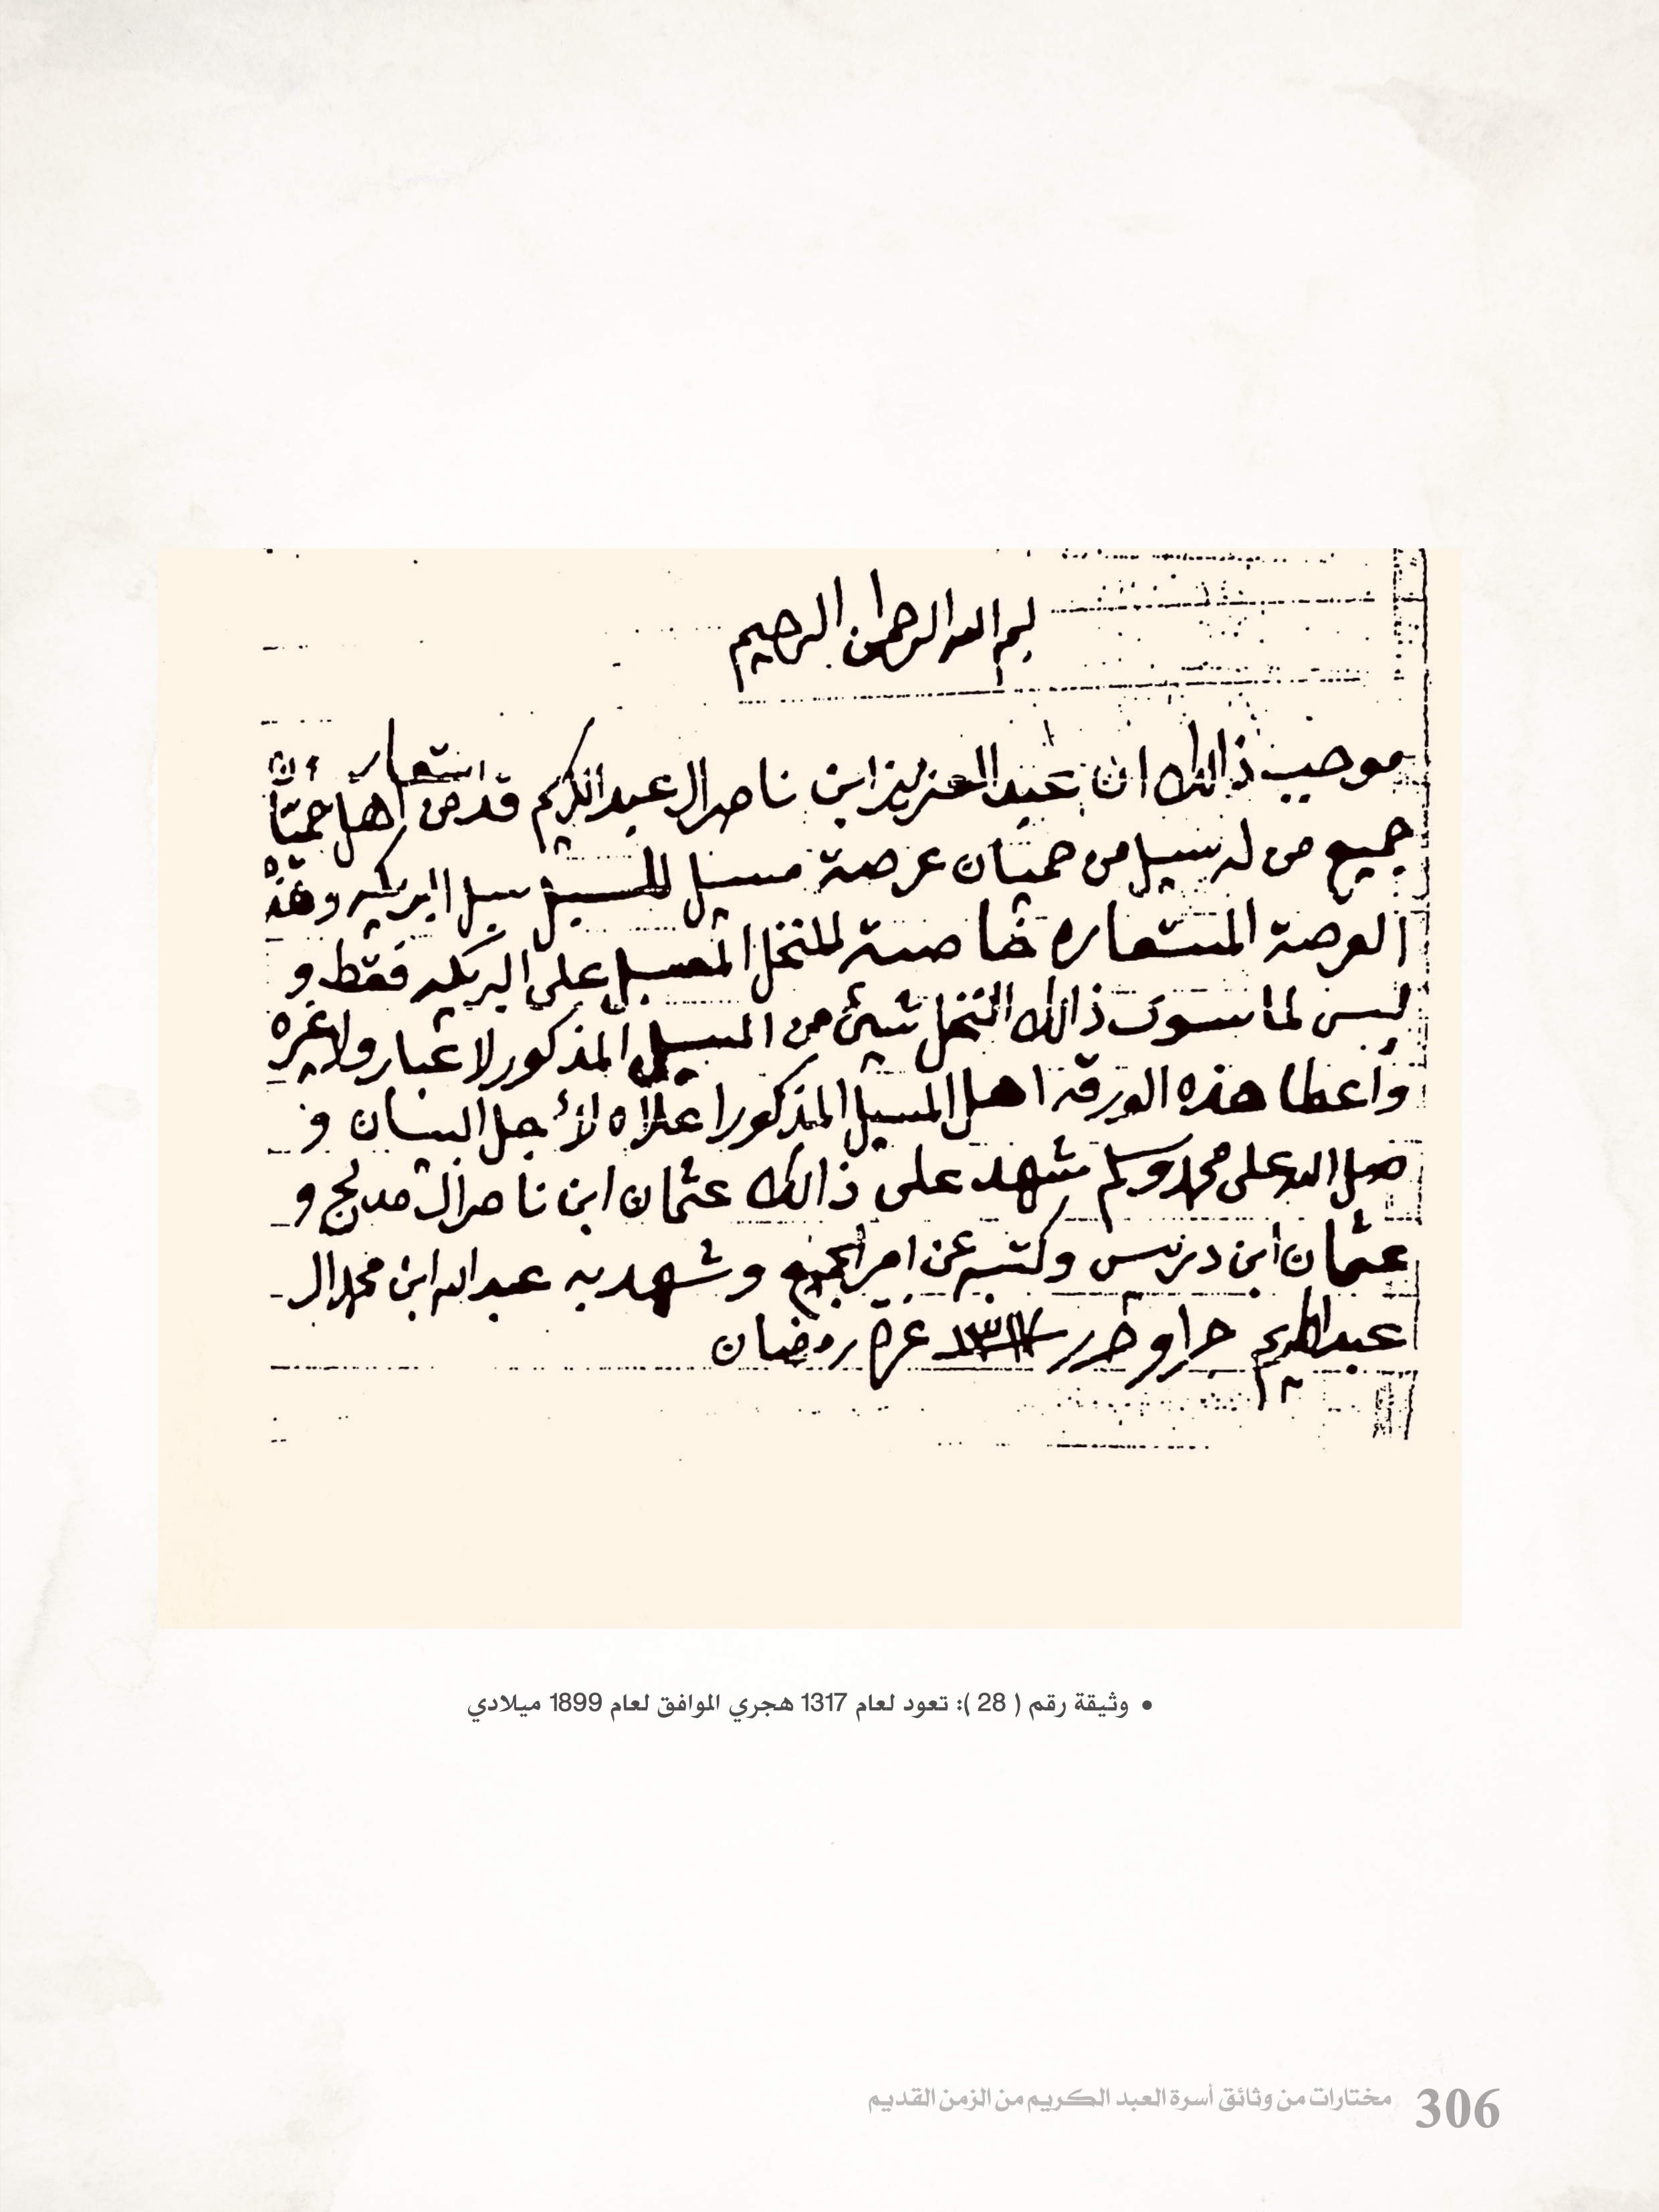 بسم الله الرحمن الرحيم
موجب ذالك ان عبد العزيز ابن ناصر ال عبد الكريم قد استعار من اهل حميان
جميع من له سيل من حميان عرصة مسيل للمسيل سيل البريكه وهذه
العرصة المستعاره خاصة للنخل المسيل على البريكه فقط و
ليس لما سوى ذالك النخل شيئ من المسيل المذكور لا عبار ولا غيره
واعطا هذه الورقه اهل المسيل المذكور اعلاه لأجل البيان و
صل الله على محمد وسلم شهد على ذالك عثمان ابن ناصر ال مدلج و
عثمان ابن دريس وكتبه عن امر الجميع وشهد به عبد الله ابن محمد ال
عبد الكريم جرا وحرر ١٣١٧ غرة رمضان
• وثيقة رقم ( 28 ): تعود لعام 1317 هجري الموافق لعام 1899 ميلادي
306 مختارات من وثائق أسرة العبد الكريم من الزمن القديم